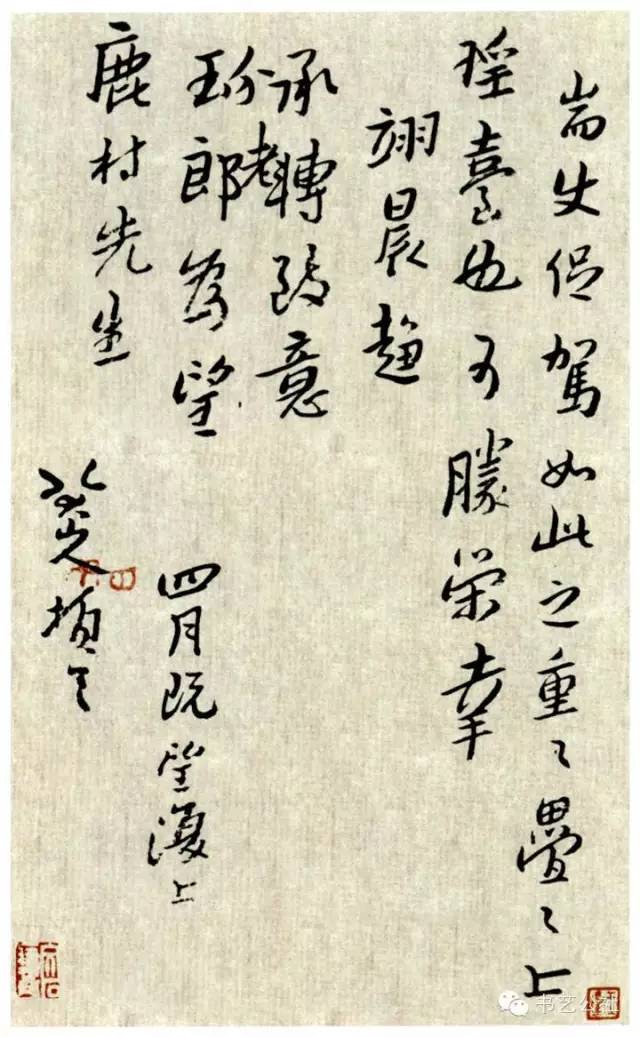 耑使促駕如此之重重疊疊上
瑤臺也可勝榮幸
翊晨趨
承轉致意
玢郎為望
四月既望復上
鹿村先生
八大山人頓首
书艺公社